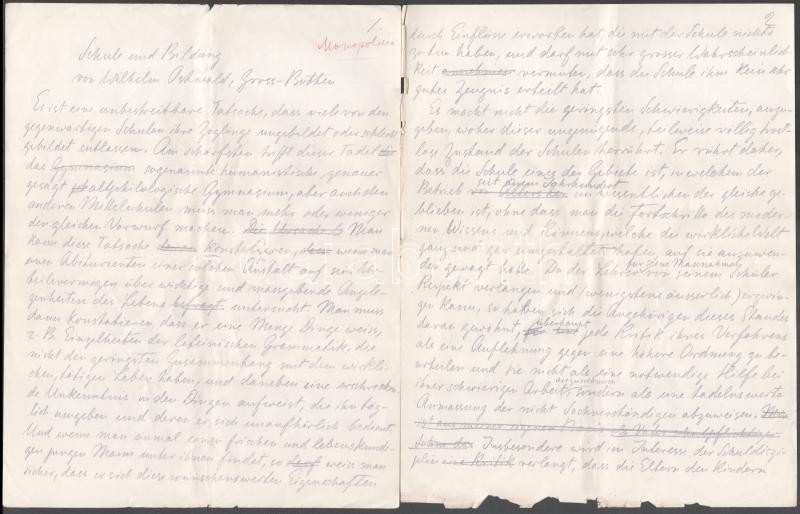 1.
Monopolien
Schule und Bildung
von Wilhelm Ostwald, Gross-Bothen
Es ist eine unbestreitbare Tatsache, dass viele von den
gegenwärtigen Schulen ihre Zöglinge ungebildet oder schlecht
gebildet entlassen. Am schärfsten trifft dieser Tadel
das Gymnasium sogenannte humanistische, genauer
gesagt altphilologische Gymnasium, aber auch den
anderen Mittelschulen muss man mehr oder weniger
den gleichen Vorwurf machen. Die Ursache Man
kann diese Tatsache konstatieren, wenn man
einen Abiturienten einer solchen Anstalt auf sein Ur-
teilsvermögen über wichtige und massgebende Angele-
genheiten des Lebens befragt untersucht. Man muss
dann konstatieren, dass er eine Menge Dinge weiss,
z. B. Einzelheiten der lateinischen Grammatik, die
nicht den geringsten Zusammenhang mit dem wirkli-
chen, tätigen Leben haben, und daneben eine erschrecken-
de Unkenntnis in den Dingen aufweist, die ihn täg-
lich umgeben und deren er sich unaufhörlich bedient.
Und wenn man einmal einen frischen und lebenskundi-
gen jungen Mann unter ihnen findet, so darf weiss man
sicher, dass er sich diese wünschenswerten Eigenschaften
2
durch Einflüsse erworben hat die mit der Schule nichts
zu tun haben, und darf mit sehr grosser Wahrscheinlich-
keit annehmen vermuten, dass die Schule ihm kein sehr
gutes Zeugnis erteilt hat.
Es macht nicht die geringsten Schwierigkeiten, anzu-
geben, woher dieser ungenügende, teilweise völlig trost-
lose Zustand der Schulen herrührt. Er rührt daher,
dass die Schule eines der Gebiete ist, in welchem der
seit einem Jahrhundert
Betrieb im wesentlichen der gleiche ge-
blieben ist, ohne dass man die Fortschritte des moder-
nen Wissens und Könnens, welche die wirkliche Welt
ganz und gar umgestaltet haben, auf sie anzuwen-
den gewagt hätte. Da der Lehrer von seinem Schüler
für seine Massnahmen
Respekt verlangen und (wenigstens äusserlich) erzwin-
gen kann, so haben sich die Angehörigen dieses Standes
überhaupt
daran gewöhnt jede Kritik ihres Verfahrens
als eine Auflehnung gegen eine höhere Ordnung zu be-
urteilen und sie nicht als eine notwendige Hilfe bei
anzunehmen
ihrer schwierigen Arbeit, sondern als eine tadelnswerte
Anmassung der nicht Sachverständigen abzuweisen.
ist aus meiner eigenen
Insbesondere wird im Interesse der Schuldiszi-
plin eine Kritik verlangt, dass die Eltern den Kindern